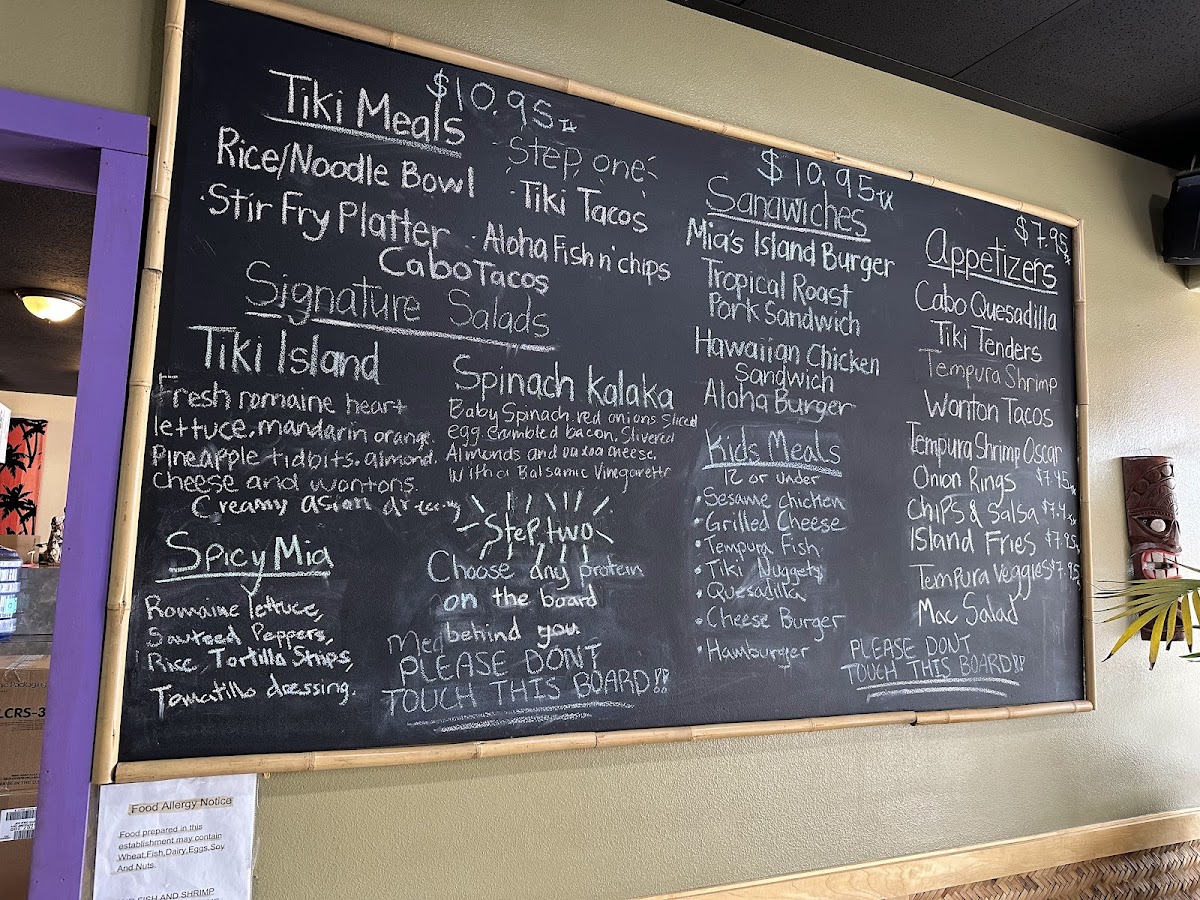 Tiki Meals $10.95 tx
Step one
Rice/Noodle Bowl
·Tiki Tacos
·Stir Fry Platter
·Aloha Fish n' chips
Cabo Tacos
Signature Salads
Tiki Island
Fresh romaine heart
lettuce, mandarin orange.
Pineapple tidbits, almond,
cheese and wontons.
Creamy asian
Spinach Kalaka
Baby Spinach, red onions sliced
egg crumbled bacon, Slivered
Almonds and cheese,
with a Balsamic Vinegarette
Spicy Mia
Romaine lettuce,
Sauteed Peppers,
Rice, Tortilla Strips,
Tomatillo dressing.
Step two
Choose any protein
on the board
behind you
PLEASE DONT
TOUCH THIS BOARD!!
$10.95 tx
Sandwiches
Mia's Island Burger
Tropical Roast
Pork Sandwich
Hawaiian Chicken
Sandwich
Aloha Burger
Kids Meals
12 or under
·Sesame chicken
·Grilled Cheese
·Tempura Fish
·Tiki Nuggets
·Quesadilla
·Cheese Burger
·Hamburger
$7.95
Appetizers
Cabo Quesadilla
Tiki Tenders
Tempura Shrimp
Wonton Tacos
Tempura Shrimp Oscar
Onion Rings $7.45
Chips & Salsa
Island Fries $7.95
Tempura Veggies $7.95
Mac Salad
PLEASE DONT
TOUCH THIS BOARD!!
Food Allergy Notice
Food prepared in this
establishment may contain
Wheat,Fish,Dairy,Eggs,Soy
And Nuts.
FISH AND SHRIMP
LCRS-3